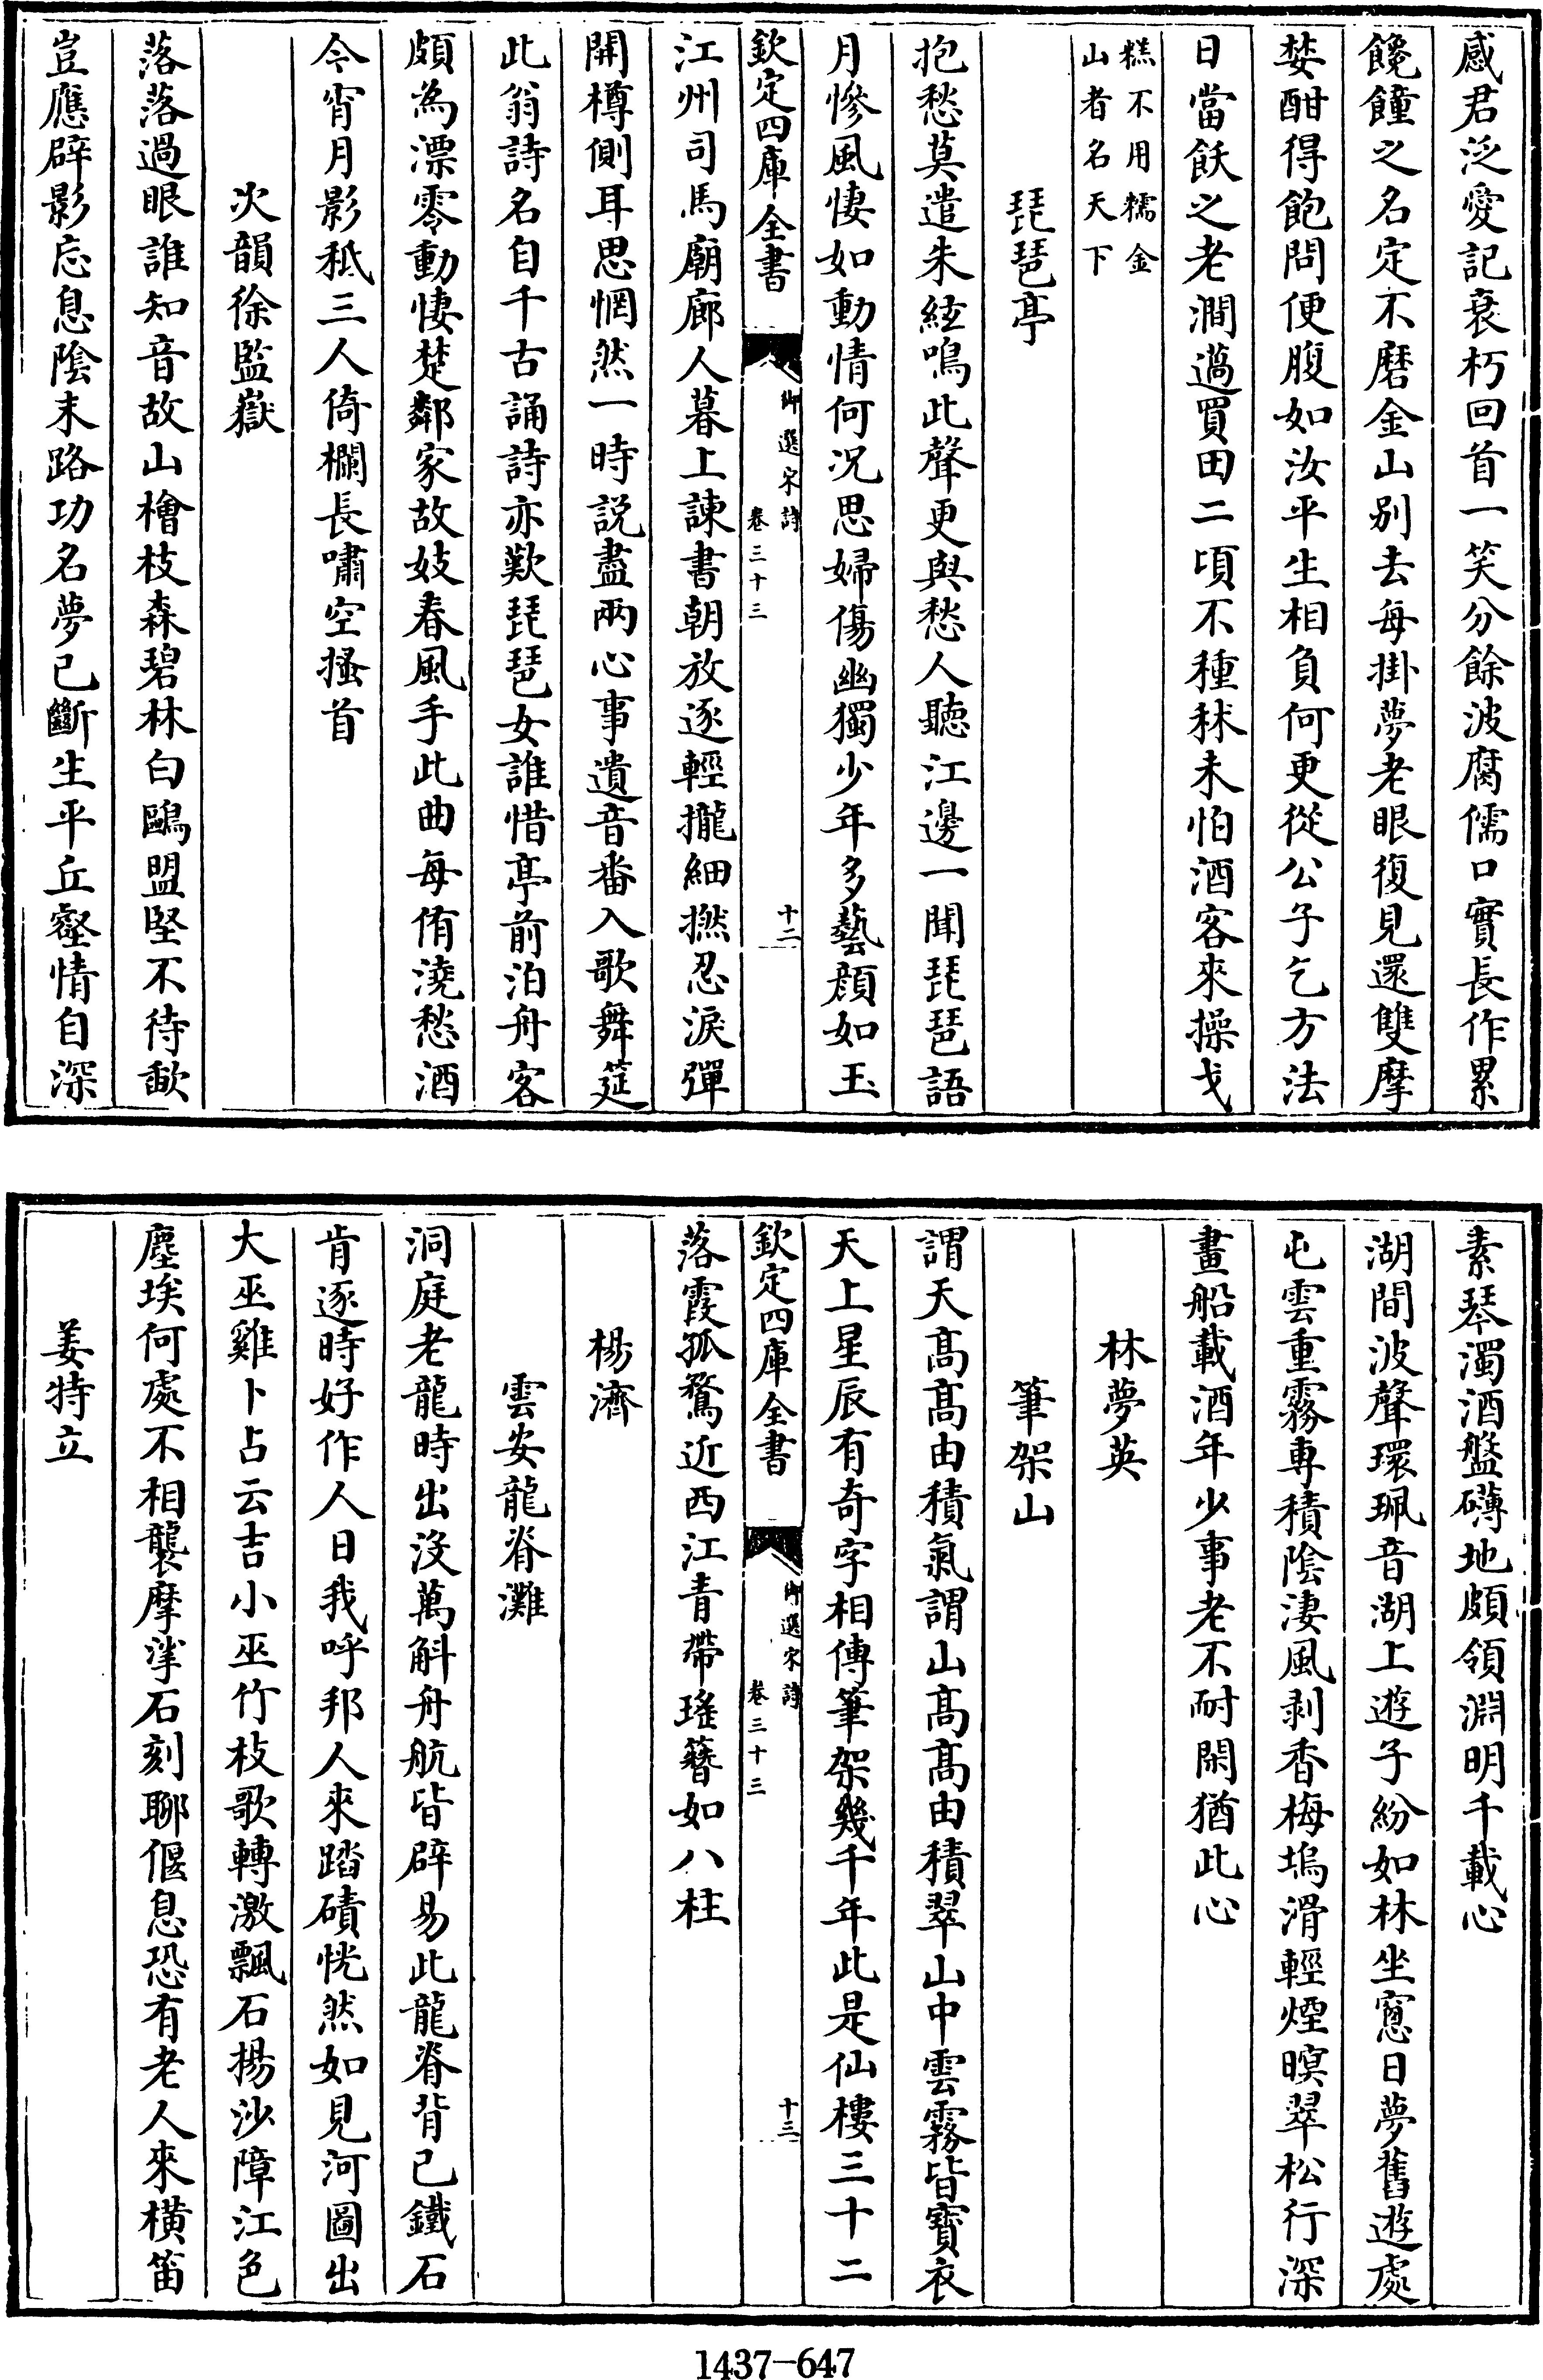 感君泛愛記衰朽回首一笑分餘波腐儒口實長作累
饞饉之名定不磨金山别去每掛夢老眼復見還雙摩
婪酣得飽問便腹如汝平生相負何更從公子乞方法
日當飫之老澗薖買田二頃不種秫未怕酒客來操戈
糕不用糯金
山者名天下
琵琶亭
抱愁莫遣朱絃鳴此聲更與愁人聽江邊一聞琵琶語
月慘風悽如動情何况思婦傷幽獨少年多藝顔如玉
欽定四庫全書
御選宋詩
卷三十三
十二
江州司馬廟廊人暮上諫書朝放逐輕攏細撚忍淚彈
開樽側耳思惘然一時説盡兩心事遺音番入歌舞筵
此翁詩名自千古誦詩亦歎琵琶女誰惜亭前泊舟客
頗為漂零動悽楚鄰家故妓春風手此曲每侑澆愁酒
今宵月影秪三人倚欄長嘯空搔首
次韻徐監嶽
落落過眼誰知音故山檜枝森碧林白鷗盟堅不待歃
豈應辟影忘息陰末路功名夢已斷生平丘壑情自深
素琴濁酒盤礴地頗領淵明千載心
湖間波聲環珮音湖上遊子紛如林坐窻日夢舊遊處
屯雲重霧專積陰淒風剥香梅塢滑輕煙暝翠松行深
畫船載酒年少事老不耐閑猶此心
林夢英
筆架山
謂天髙髙由積氣謂山髙髙由積翠山中雲霧皆寳衣
天上星辰有奇字相傳筆架幾千年此是仙樓三十二
欽定四庫全書
御選宋詩
卷三十三
十三
落霞孤鶩近西江青帶瑤簪如八柱
楊濟
雲安龍脊灘
洞庭老龍時出沒萬斛舟航皆辟易此龍脊背已鐵石
肯逐時好作人日我呼邦人來踏磧恍然如見河圖出
大巫雞卜占云吉小巫竹枝歌轉激飄石揚沙障江色
塵埃何處不相襲摩挲石刻聊偃息恐有老人來横笛
姜特立
1437-647